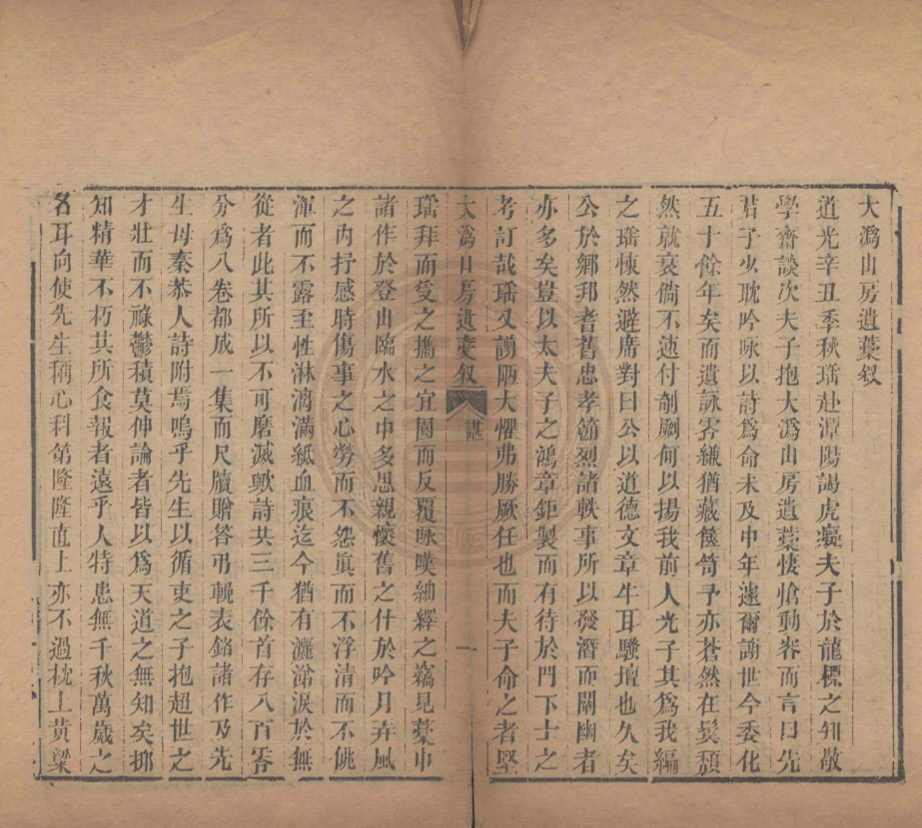 大溈山房遺藁叙
道光辛丑季秋瑤赴潭陽謁虎癡夫子於龍標之知敬
學齋談次夫子抱大溈山房遺藁悽愴動容而言曰先
君子少耽吟咏以詩爲命未及中年遽爾謝世今委化
五十餘年矣而遺詠零縑猶藏篋笥予亦蒼然在髮頽
然就衰倘不速付剞劂何以揚我前人光子其爲我編
之瑤悚然避席對曰公以道德文章牛耳騷壇也久矣
公於鄉邦耆舊忠孝節烈諸軼事所以發潛而闡幽者
亦多矣豈以太夫子之鴻章鉅製而有待於門下士之
考訂哉瑤又謭陋大懼弗勝厥任也而夫子命之者堅
大溈山房遺藁叙 諶 一
瑤拜而受之攜之宜園而反覆咏嘆紬繹之竊見藁中
諸作於登山臨水之中多思親懷舊之什於吟月弄風
之內抒感時傷事之心勞而不怨眞而不浮清而不佻
渾而不露至性淋漓滿紙血痕迄今猶有灑涕淚於無
從者此其所以不可磨滅歟詩共三千餘首存八百零
分爲八卷都成一集而尺牘贈答弔輓表銘諸作及先
生母秦恭人詩附焉嗚乎先生以循吏之子抱超世之
才壯而不祿鬱積莫伸論者皆以爲天道之無知矣抑
知精華不朽其所食報者遠乎人特患無千秋萬歲之
名耳向使先生稱心科第隆隆直上亦不過枕上黃粱